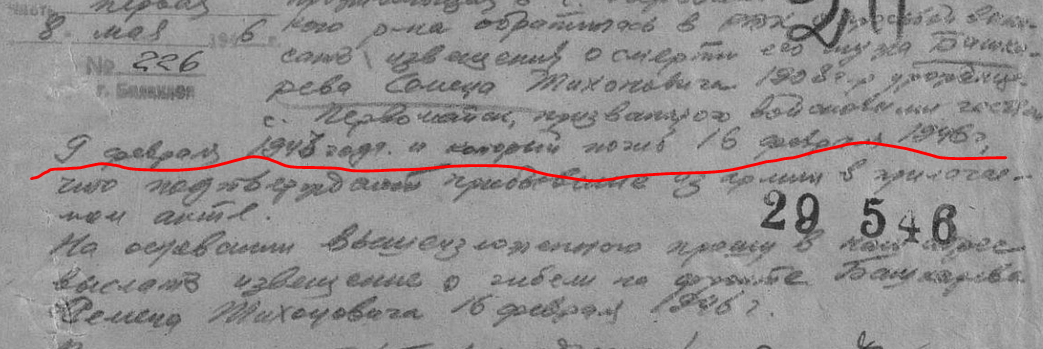 часть первая
8. мая 1946 г.
№ 226
г. Балаклея
кого р-на обратилась в
сать извещения о смерти его мужа Башка-
рева Семена Тихоновича 1908 г.р уроженца
с. Первомайск, призванного войсковыми частями
9 февраля 1943 года. и который погиб 16 февраля 1946 г,
что подтверждают прибывшие из армии в прилагае-
мом акте.
29 546
На основании вышеизложенного прошу в наш адрес
выслать извещение о гибели на фронте Башкарева
Семена Тихоновича 16 февраля 1946 г.